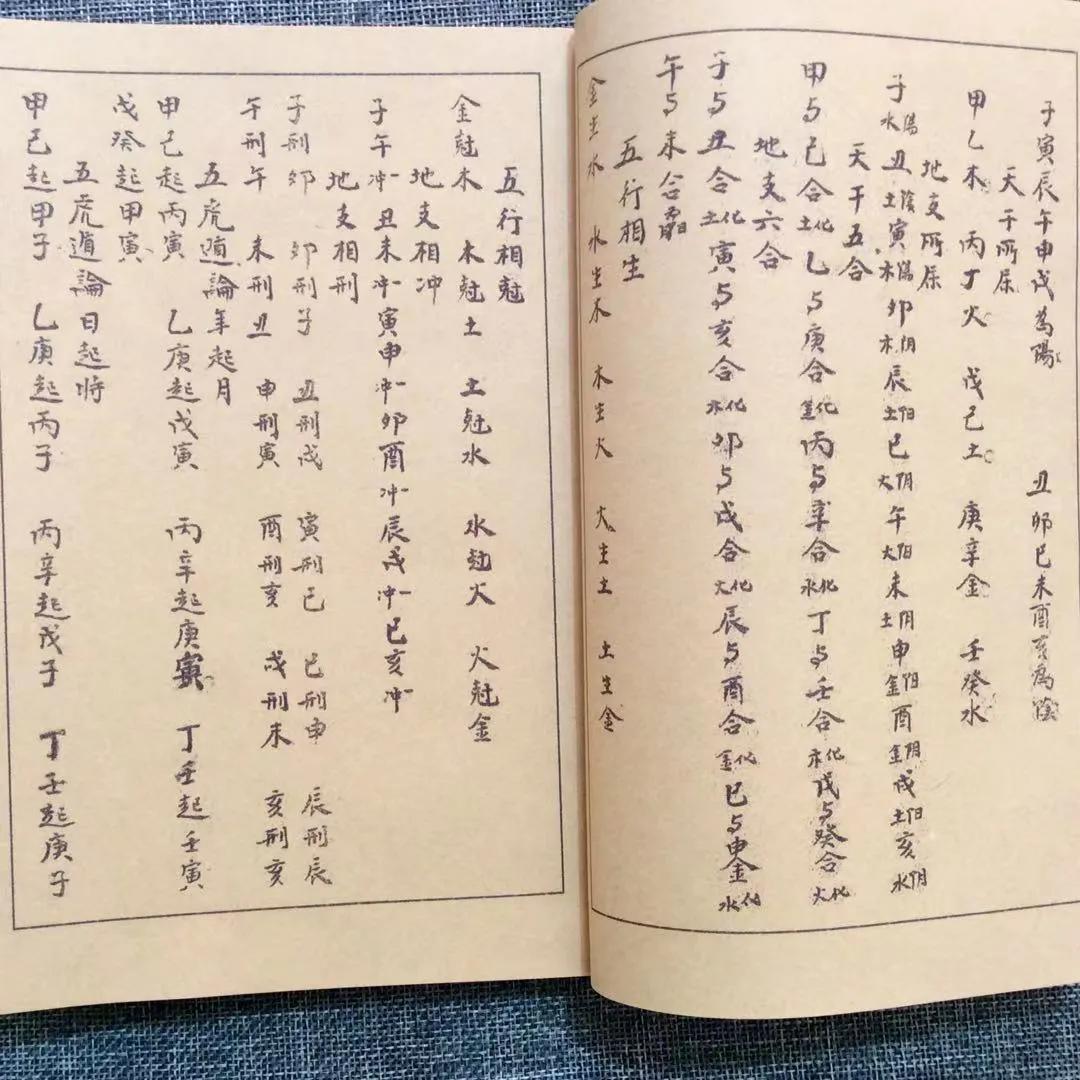 子寅辰午申戌為陽 丑卯巳未酉亥為陰
天干所属
甲乙木 丙丁火 戊己土 庚辛金 壬癸水
地支所属
子水陽 丑土陰 寅木陽 卯木阴 辰土阳 巳火阴 午火阳 未土阴 申金阳 酉金阴 戌土阳 亥水阴
天干五合
甲与己合化土 乙与庚合化金 丙与辛合化水 丁与壬合化木 戊与癸合化火
地支六合
子与丑合化土 寅与亥合化木 卯与戌合化火 辰与酉合化金 巳与申 化水
午与未合
五行相生
金生水 水生木 木生火 火生土 土生金
五行相尅
金尅木 木尅土 土尅水 水尅火 火尅金
地支相冲
子午冲 丑未冲 寅申冲 卯酉冲 辰戌冲 巳亥冲
地支相刑
子刑卯 卯刑子 丑刑戌 寅刑巳 巳刑申 辰刑辰
午刑午 未刑丑 申刑寅 酉刑亥 戌刑未 亥刑亥
五虎遁論年起月
甲己起丙寅 乙庚起戊寅 丙辛起庚寅 丁壬起壬寅
戊癸起甲寅
五虎遁論日起将
甲己起甲子 乙庚起丙子 丙辛起戊子 丁壬起庚子